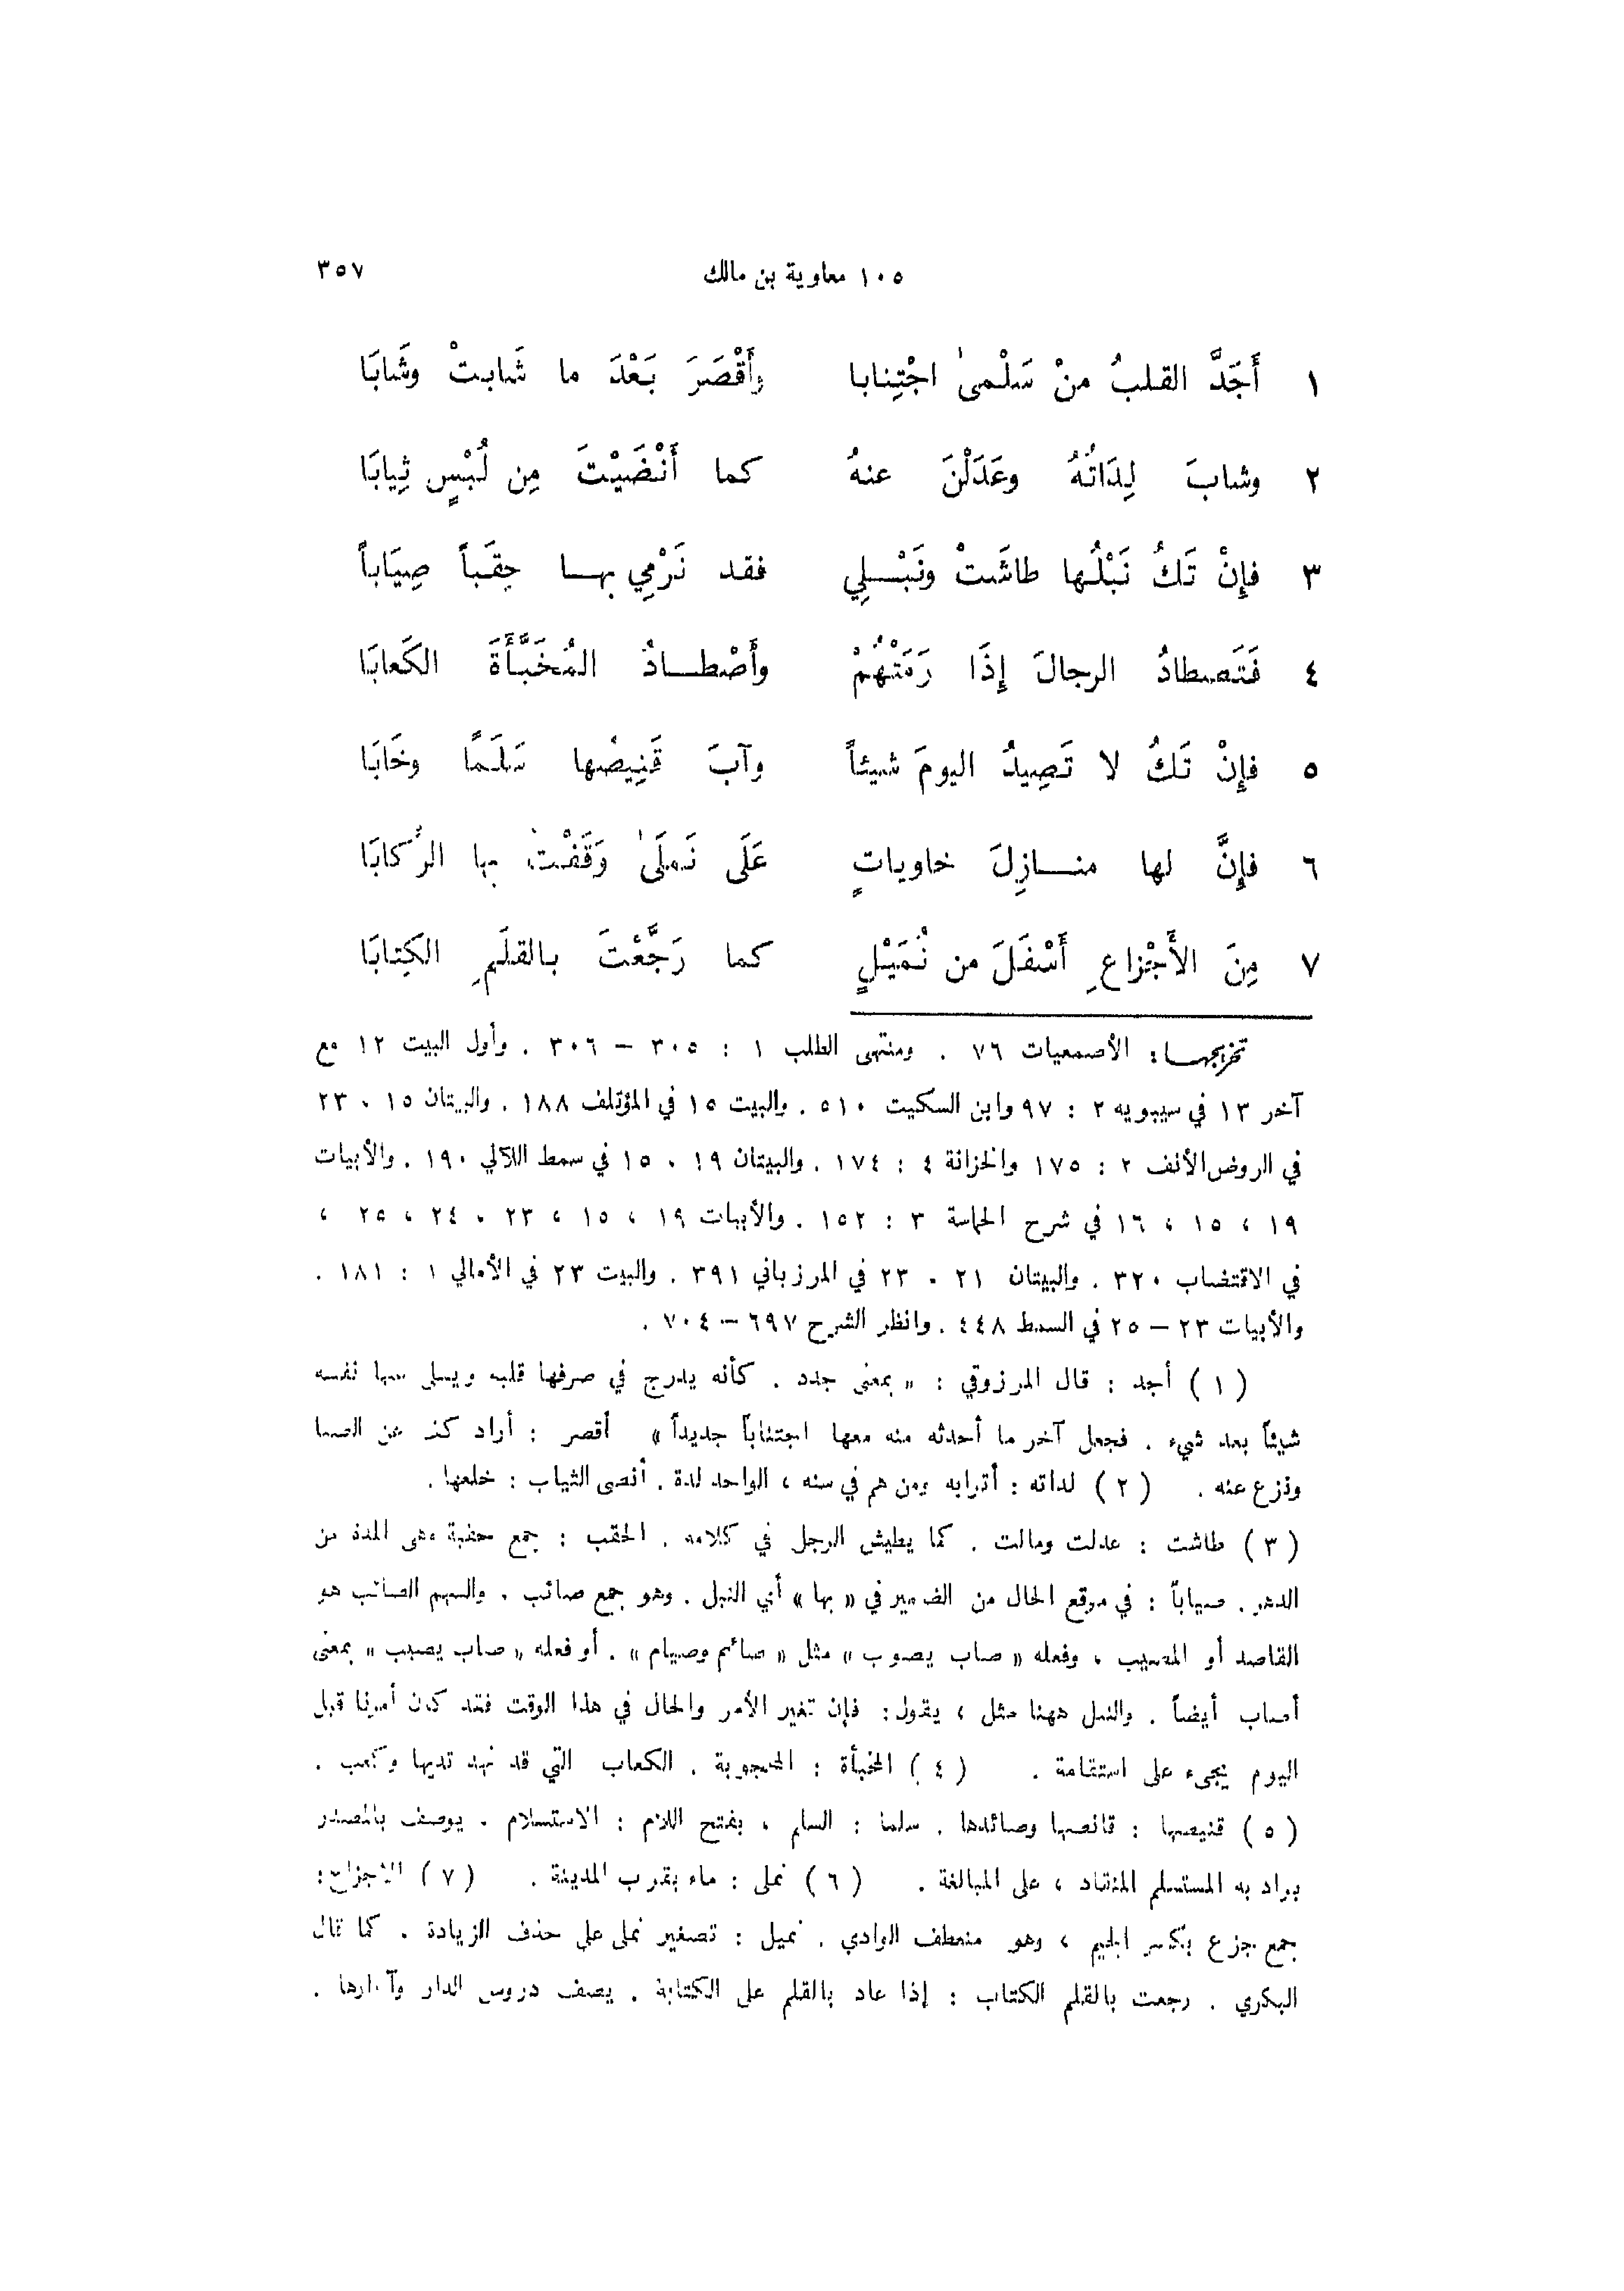 ١٠٥ معاوية بن مالك ٣٥٧
١ أَجَدَّ القلبُ منْ سَلْمىٰ اجْتِنابا وأَقْصَرَ بَعْدَ ما شَابتْ وشَابَا
٢ وشابَ لِدَاتُهُ وعَدَلْنَ عنهُ كما أَنْضَيْتَ مِن لُبْسٍ ثِيابَا
٣ فإِنْ تَكُ نَبْلُها طاشَتْ ونَبْلِي فقد نَرْمِي بها حِقَباً صِيَاباً
٤ فَتَصطادُ الرجالَ إِذَا رَمَتْهُمْ وأَصْطادُ المُخَبَّأَةَ الكَعابَا
٥ فإِنْ تَكُ لا تَصِيدُ اليومَ شيئاً وآبَ قَنِيصُها سَلَماً وخَابَا
٦ فإِنَّ لها منازِلَ خاوياتٍ عَلَى نَملَىٰ وَقَفْتُ بها الرِّكابَا
٧ مِنَ الأَجْزاعِ أَسْفَلَ من نُمَيْلٍ كما رَجَّعْتَ بالقلَمِ الكِتابَا
تخريجها : الأصمعيات ٧٦ . ومنتهى الطلب ١ : ٣٠٥ – ٣٠٦ . وأول البيت ١٢ مع
آخر ١٣ في سيبويه ٢ : ٩٧ وابن السكيت ٥١٠ . والبيت ١٥ في المؤتلف ١٨٨ . والبيتان ١٥ ، ٢٣
في الروض الأنف ٢ : ١٧٥ والخزانة ٤ : ١٧٤ . والبيتان ١٩ ، ١٥ في سمط اللآلي ١٩٠ . والأبيات
١٩ ، ١٥ ، ١٦ في شرح الحماسة ٣ : ١٥٢ . والأبيات ١٩ ، ١٥ ، ٢٣ ، ٢٤ ، ٢٥ ،
في الاقتضاب ٣٢٠ . والبيتان ٢١ ، ٢٣ في المرزباني ٣٩١ . والبيت ٢٣ في الأمالي ١ : ١٨١ .
والأبيات ٢٣ – ٢٥ في السمط ٤٤٨ . وانظر الشرح ٦٩٧ – ٧٠٤ .
( ١ ) أجد : قال المرزوقي : « بمعنى جدد . كأنه يدرج في صرفها قلبه ويسلي عنها نفسه
شيئاً بعد شيء . فجعل آخر ما أحدثه منه معها اجتناباً جديداً » أقصر : أراد كف عن الصبا
ونزع عنه . ( ٢ ) لداته : أترابه ومن هم في سنه ، الواحد لدة . أنضى الثياب : خلعها .
( ٣ ) طاشت : عدلت ومالت . كما يطيش الرجل في كلامه . الحقب : جمع حقبة وهى المدة من
الدهر . صياباً : في موقع الحال من الضمير في « بها » أي النبل . وهو جمع صائب . والسهم الصائب هو
القاصد أو المصيب ، وفعله « صاب يصوب » مثل « صائم وصيام » . أو فعله « صاب يصيب » بمعنى
أصاب أيضاً . والنبل ههنا مثل ، يقول : فإن تغير الأمر والحال في هذا الوقت فقد كان أمرنا قبل
اليوم يجيء على استقامة . ( ٤ ) المخبأة : المحجوبة . الكعاب التي قد نهد ثديها وكعب .
( ٥ ) قنيصها : قانصها وصائدها . سلما : السلم ، بفتح اللام : الاستسلام . يوصف بالمصدر
يراد به المستسلم المنقاد ، على المبالغة . ( ٦ ) نملى : ماء بقرب المدينة . ( ٧ ) الأجزاع :
جمع جزع بكسر الجيم ، وهو منعطف الوادي . نميل : تصغير نملى على حذف الزيادة . كما قال
البكري . رجعت بالقلم الكتاب : إذا عاد بالقلم على الكتابة . يصف دروس الدار وآثارها .